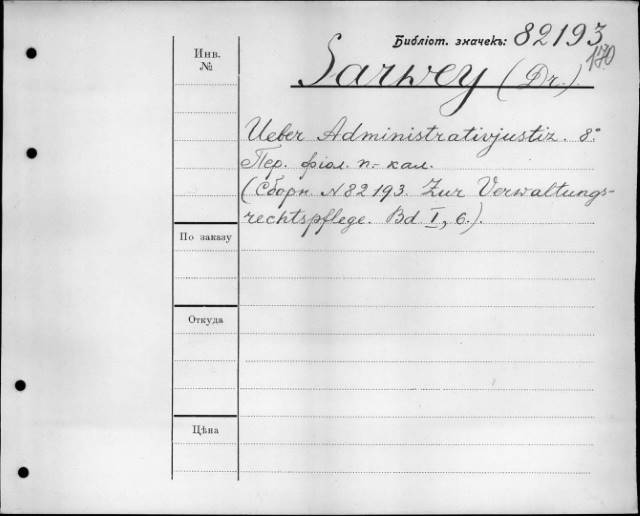 Библіот. значекъ: 82193
Инв.
№
Sarwey (Dr.)
Ueber Administrativjustiz. 8°
Пер. фіол. п.-кал.
(Сборн. N 82193. Zur Verwaltungs-
rechtspflege. Bd I, 6.).
По заказу
Откуда
Цѣна